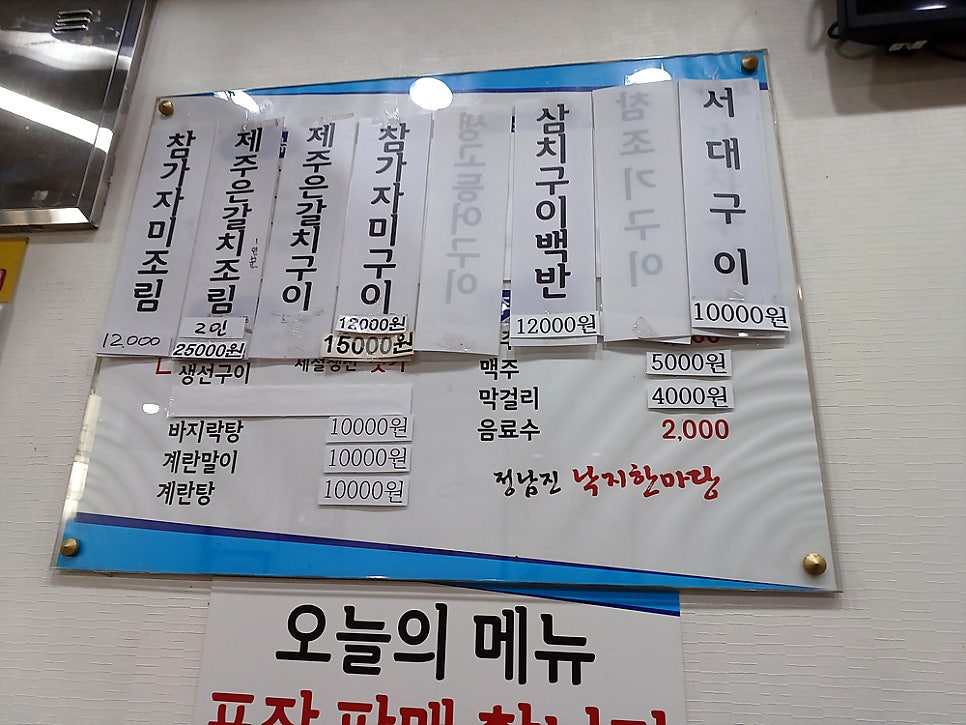 참가자미조림
12,000
제주은갈치조림
2인
25000원
제주은갈치구이
참가자미구이
12000원
15000원
생고등어구이
삼치구이백반
12000원
참조기구이
서대구이
10000원
생선구이
바지락탕 10000원
계란말이 10000원
계란탕 10000원
맥주 5000원
막걸리 4000원
음료수 2,000
정남진 낙지한마당
오늘의 메뉴
포장 판매 합니다